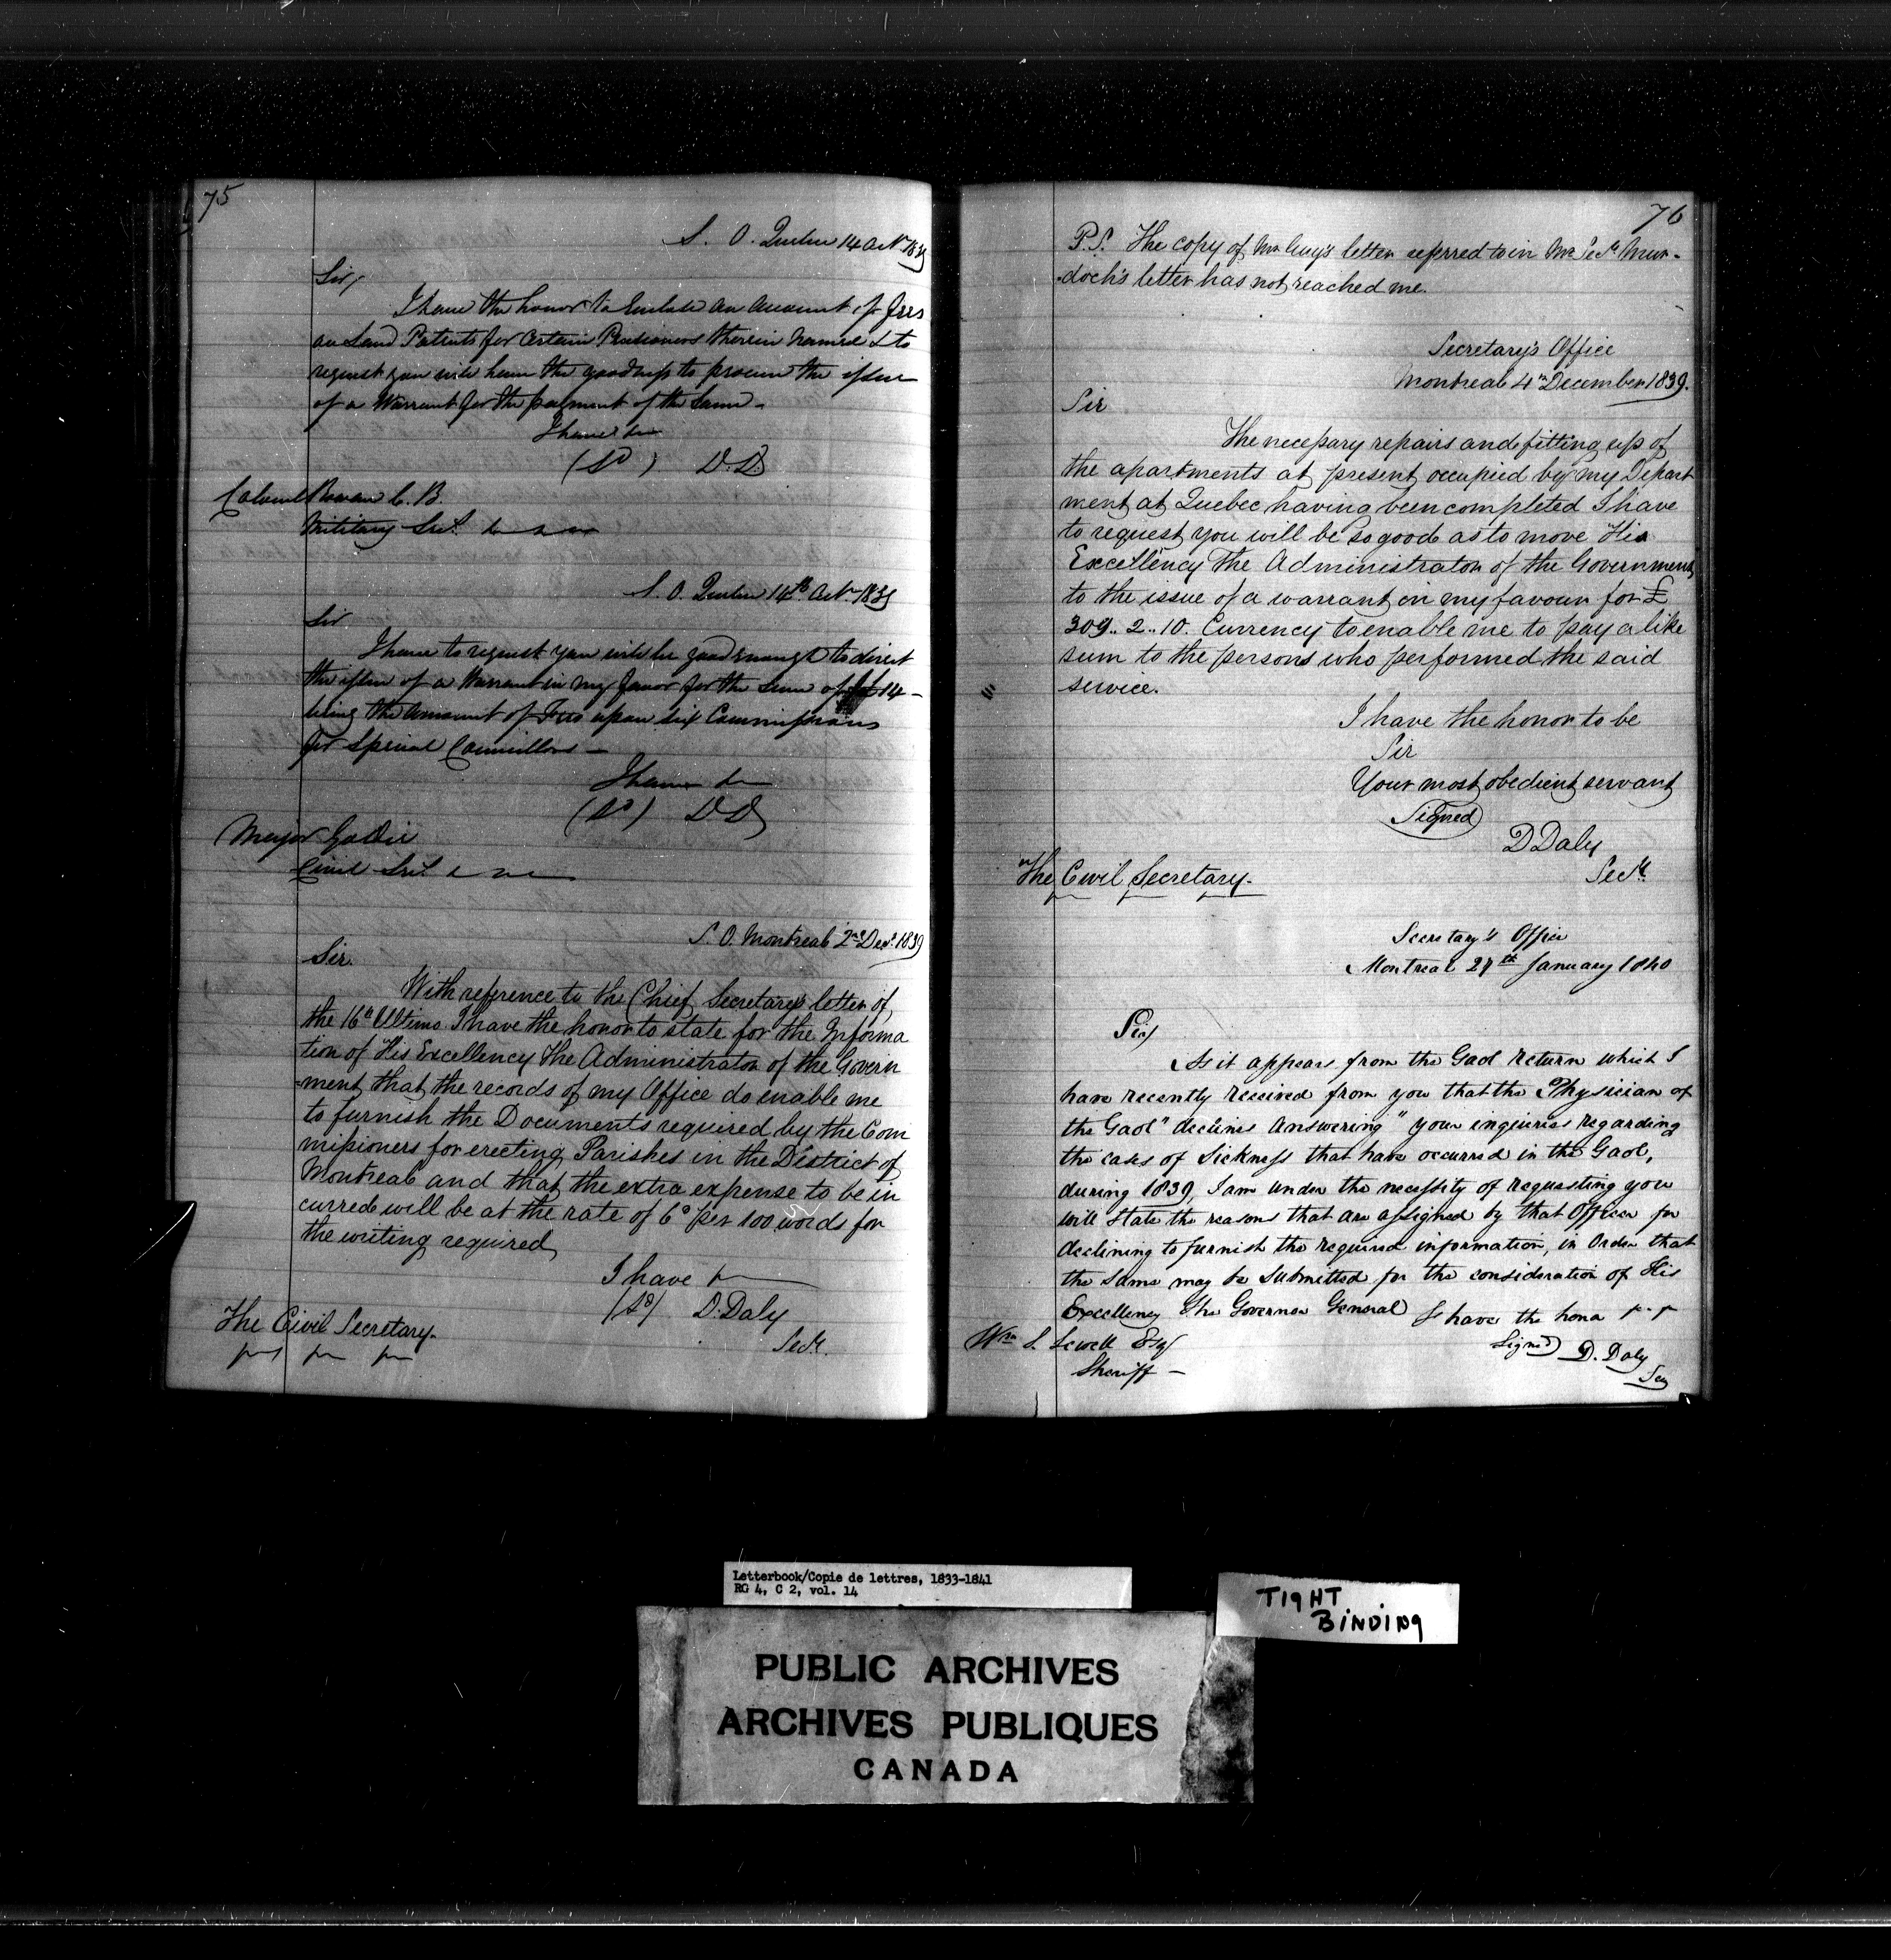 75
S. O. Quebec 14 Octr 1839
Sir,
I have the honor to Enclose an Account of fees
on Land Patents for Certain Pensioners therein named & to
request you will have the goodness to procure the issue
of a Warrant for the payment of the same -
I have &c
(Sd) D.D
Colonel Rowan C. B.
Military Secy. &c &c &c
S. O. Quebec 14th Octr 1839
Sir
I have to request you will be good enough to direct
the issue of a Warrant in my favor for the Sum of £14 -
being the amount of Fees upon six Commissions
for Special Councillors -
I have &c
(Sd) DD
Major Goldie
Civil Secy. &c &c &c
S. O. Montreal 2nd Decr. 1839
Sir.
With reference to the Chief Secretary's letter of
the 16th Ultimo I have the honor to state for the Informa
tion of His Excellency The Administrator of the Govern
-ment that the records of my Office do enable me
to furnish the Documents required by the Com
missioners for erecting Parishes in the District of
Montreal and that the extra expense to be in
curred will be at the rate of 6d per 100 words for
the writing required
I have &c
(Sd) D. Daly
Secy.
The Civil Secretary.
&c &c &c
76
P.S. The copy of Mr. Guy's letter referred to in Mr. Secy Mur-
-doch's letter has not reached me.
Secretary's Office
Montreal 4th December 1839.
Sir
The necessary repairs and fitting up of
the apartments at present occupied by my Depart
ment at Quebec having been completed I have
to request you will be so good as to move His
Excellency The Administrator of the Government
to the issue of a warrant in my favour for £
309.. 2.. 10. Currency to enable me to pay a like
sum to the persons who performed the said
service.
I have the honor to be
Sir
Your most obedient servant
Signed
D Daly
Secy.
The Civil Secretary.
&c &c &c
Secretary's Office
Montreal 27th January 1840
Sir,
As it appears from the Gaol return which I
have recently received from you that the "Physician of
the Gaol" declines Answering" your inquiries regarding
the cases of Sickness that have occurred in the Gaol,
during 1839, I am under the necessity of requesting you
will state the reasons that are assigned by that Officer for
declining to furnish the required information, in Order that
the same may be submitted for the consideration of His
Excellency The Governor General I have the honor &c &c
Signed D. Daly
Secy
Wm S. Sewell Esqr
Sheriff -
Letterbook/Copie de lettres, 1833-1841
RG 4, C 2, vol. 14
TIGHT
BINDING
PUBLIC ARCHIVES
ARCHIVES PUBLIQUES
CANADA